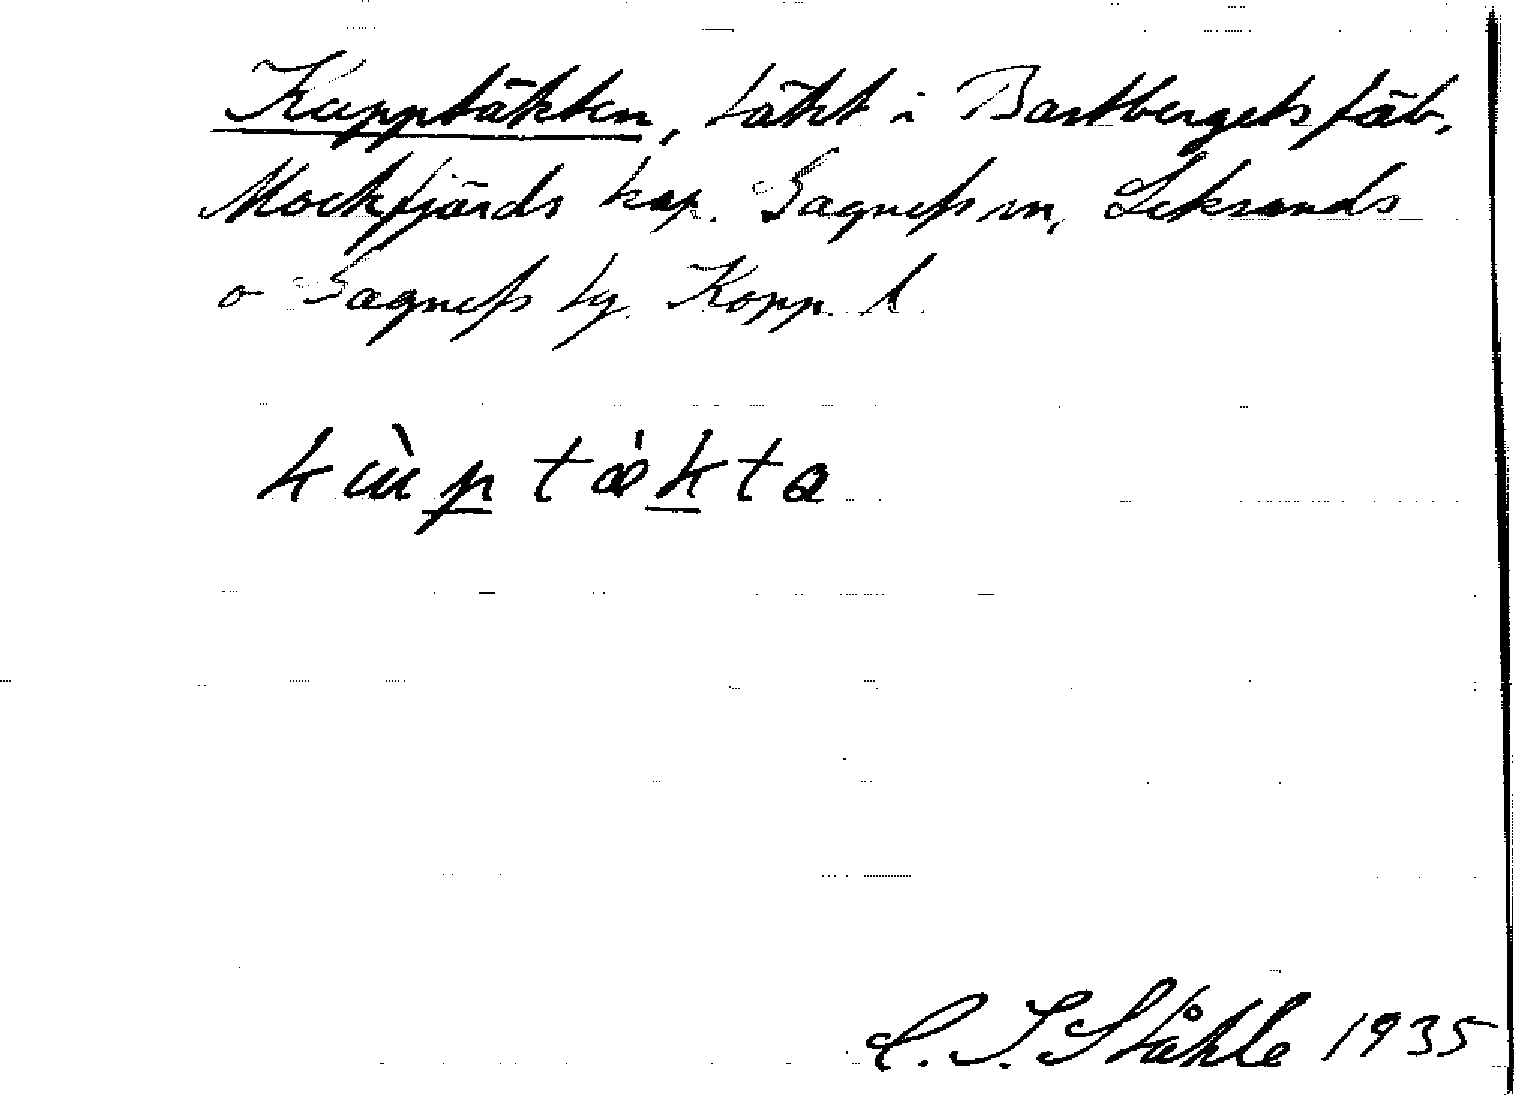 Kupptäkten, täkt i Bastbergets fäb.,
Mockfjärds kap. Gagnefs sn, Leksands
o Gagnefs tg. Kopp. l.
kùptækta
C. I. Ståhle 1935